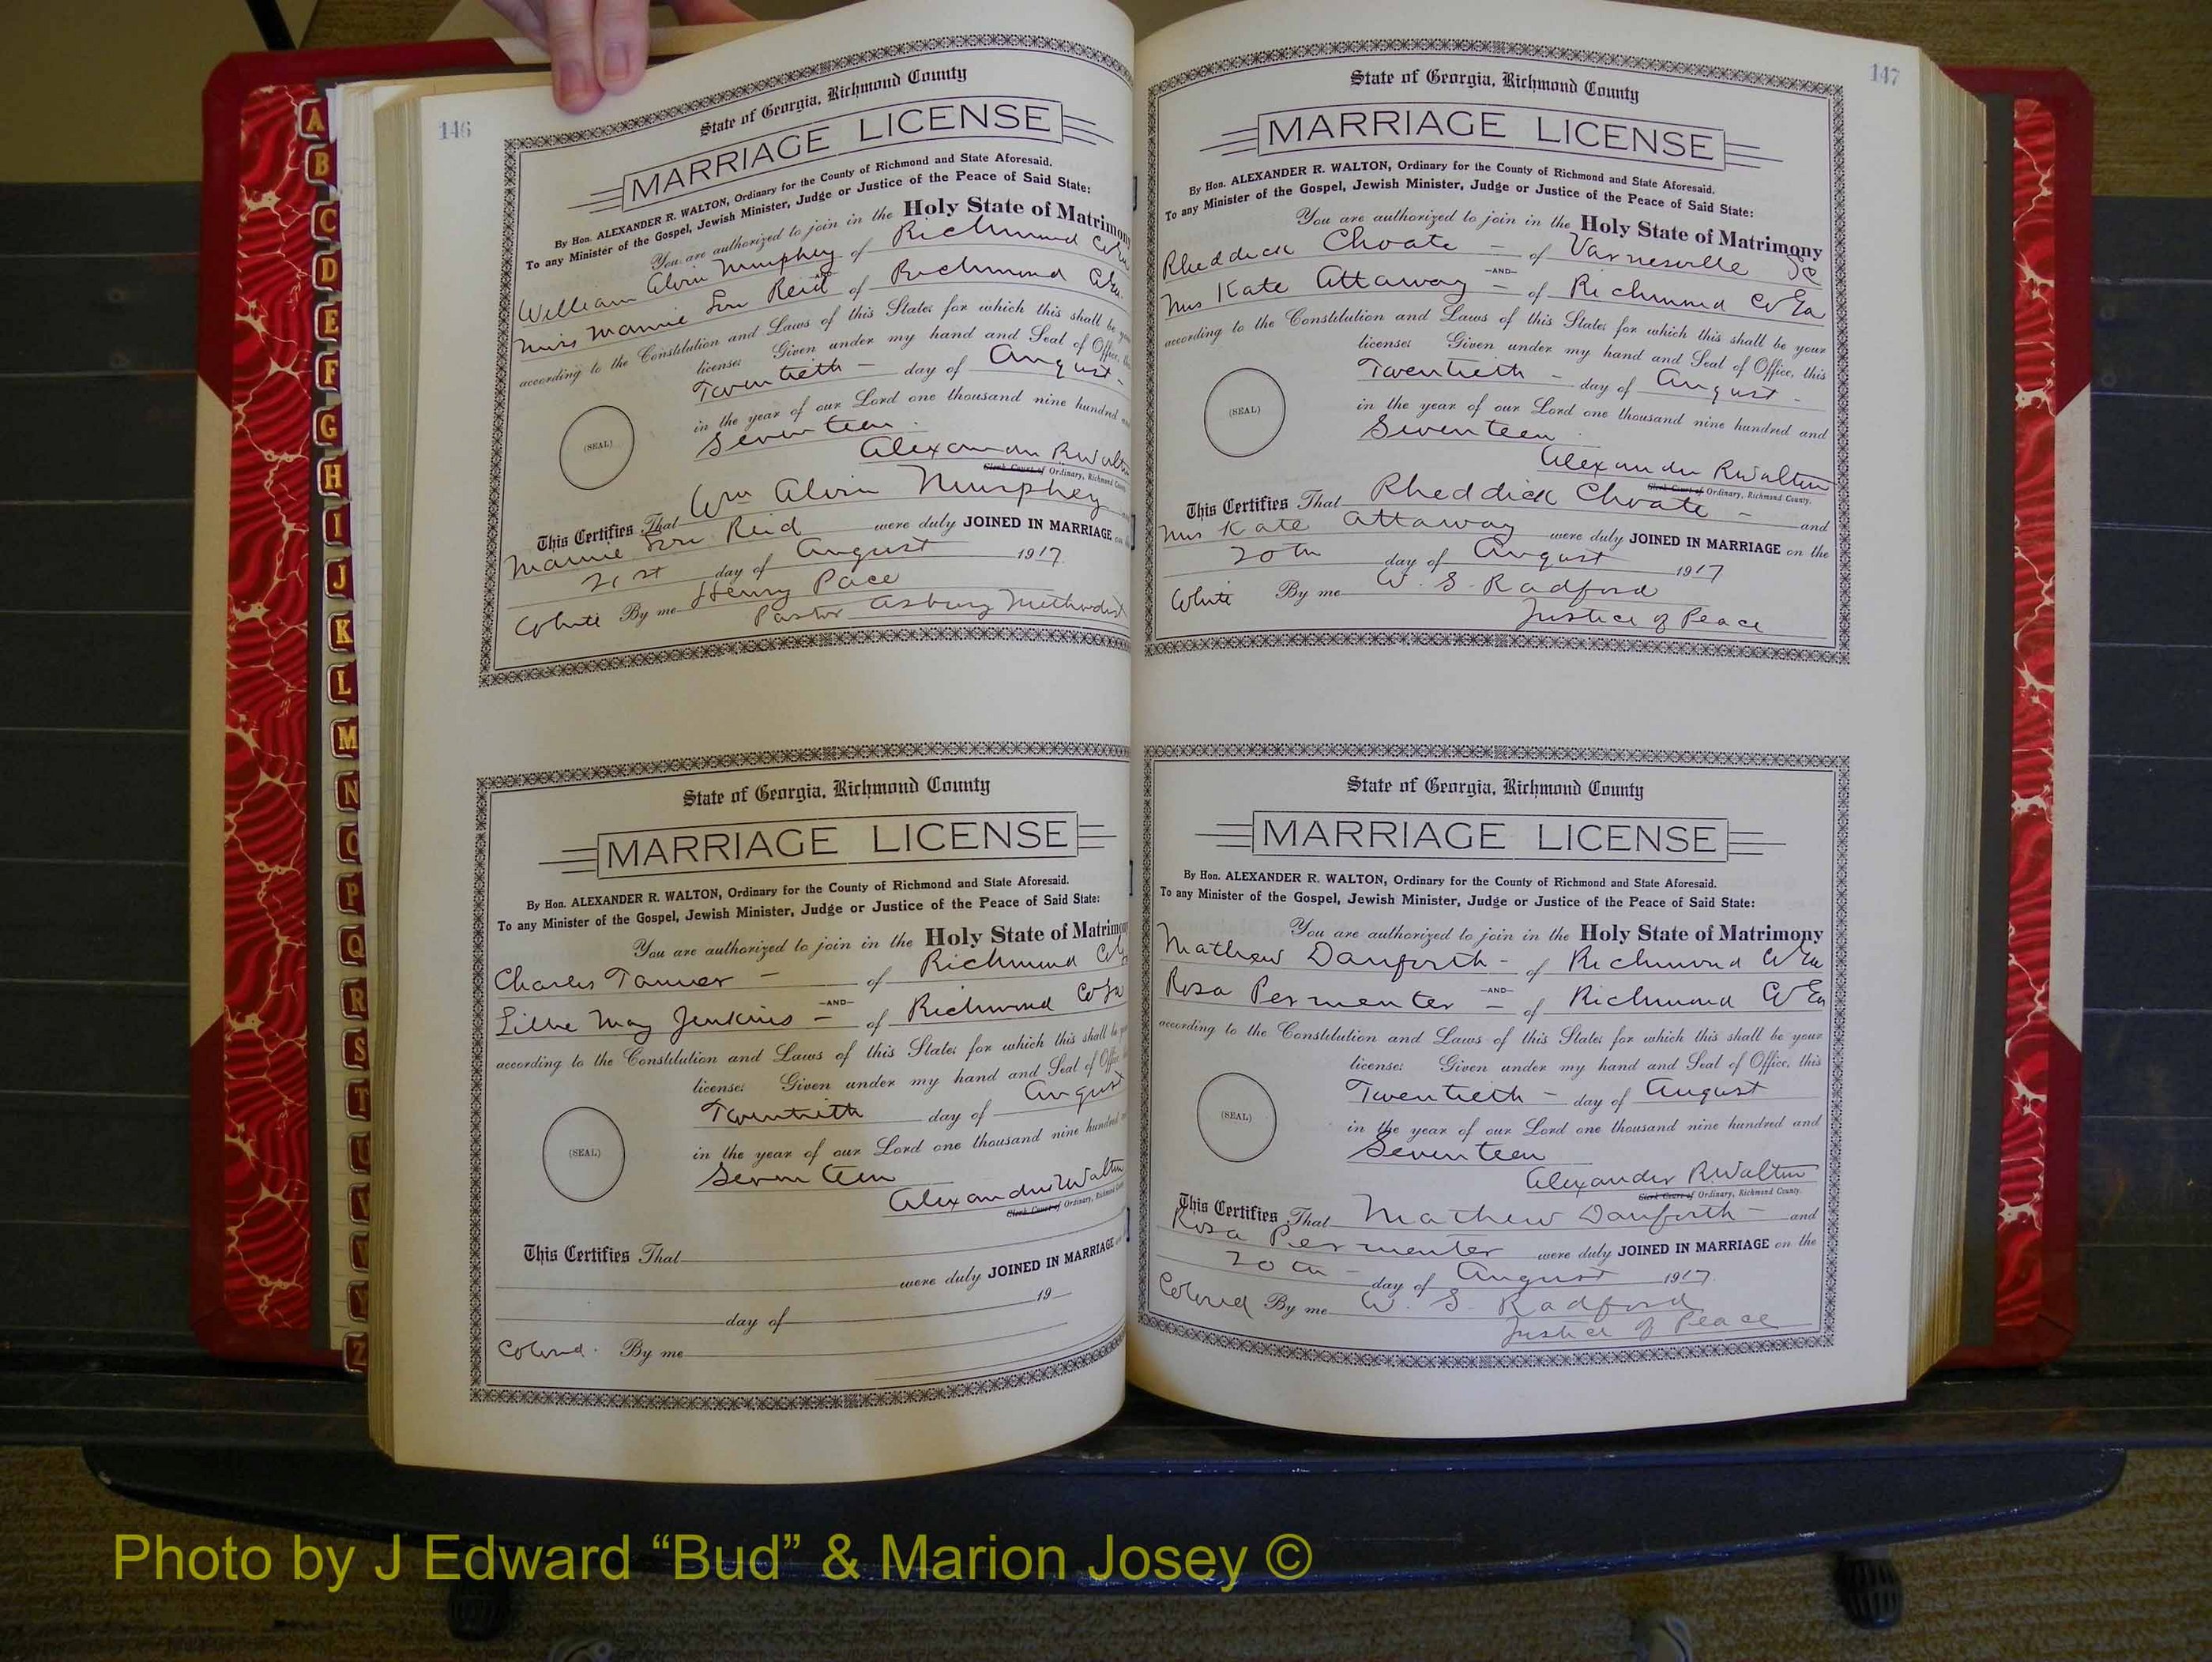 A
B
C
D
E
F
G
H
I
J
K
L
M
N
O
P
Q
R
S
T
Z
146
State of Georgia, Richmond County
MARRIAGE LICENSE
By Hon. ALEXANDER R. WALTON, Ordinary for the County of Richmond and State Aforesaid.
To any Minister of the Gospel, Jewish Minister, Judge or Justice of the Peace of Said State:
You are authorized to join in the Holy State of Matrimony
William Alvin Murphey of Richmond Co Ga
—AND—
Miss Mamie Lou Reid of Richmond Co Ga.
according to the Constitution and Laws of this State; for which this shall be
license: Given under my hand and Seal of Office,
Twentieth — day of August -
in the year of our Lord one thousand nine hundred
Seventeen
(SEAL)
Alexander R Walton
Clerk Court of Ordinary, Richmond County
This Certifies That Wm Alvin Murphey
Mamie Lou Reid were duly JOINED IN MARRIAGE on
21st day of August 1917.
White By me Henry Pace
Pastor Asbury Methodist
State of Georgia, Richmond County
MARRIAGE LICENSE
By Hon. ALEXANDER R. WALTON, Ordinary for the County of Richmond and State Aforesaid.
To any Minister of the Gospel, Jewish Minister, Judge or Justice of the Peace of Said State:
You are authorized to join in the Holy State of Matrimony
Charles Tanner — of Richmond Co
—AND—
Lillie May Jenkins — of Richmond Co Ga
according to the Constitution and Laws of this State; for which this shall be
license: Given under my hand and Seal of Office
Twentieth day of August
in the year of our Lord one thousand nine hundred
Seventeen
(SEAL)
Alexander R Walton
Clerk Court of Ordinary, Richmond
This Certifies That
were duly JOINED IN MARRIAGE
day of 19
Colored. By me
147
State of Georgia, Richmond County
MARRIAGE LICENSE
By Hon. ALEXANDER R. WALTON, Ordinary for the County of Richmond and State Aforesaid.
To any Minister of the Gospel, Jewish Minister, Judge or Justice of the Peace of Said State:
You are authorized to join in the Holy State of Matrimony
Rheddick Choate — of Varnesville SC
—AND—
Mrs Kate Attaway — of Richmond Co Ga
according to the Constitution and Laws of this State; for which this shall be your
license: Given under my hand and Seal of Office, this
Twentieth — day of August -
in the year of our Lord one thousand nine hundred and
Seventeen
(SEAL)
Alexander R Walton
Clerk Court of Ordinary, Richmond County.
This Certifies That Rheddick Choate — and
Mrs Kate Attaway were duly JOINED IN MARRIAGE on the
20th day of August 1917
White By me W. S. Radford
Justice of Peace
State of Georgia, Richmond County
MARRIAGE LICENSE
By Hon. ALEXANDER R. WALTON, Ordinary for the County of Richmond and State Aforesaid.
To any Minister of the Gospel, Jewish Minister, Judge or Justice of the Peace of Said State:
You are authorized to join in the Holy State of Matrimony
Mathew Danforth - of Richmond Co Ga
—AND—
Rosa Permenter — of Richmond Co Ga
according to the Constitution and Laws of this State; for which this shall be your
license: Given under my hand and Seal of Office, this
Twentieth — day of August
in the year of our Lord one thousand nine hundred and
Seventeen
(SEAL)
Alexander R Walton
Clerk Court of Ordinary, Richmond County.
This Certifies That Mathew Danforth — and
Rosa Permenter were duly JOINED IN MARRIAGE on the
20th — day of August 1917.
Colored By me W. S. Radford
Justice of Peace
Photo by J Edward “Bud” & Marion Josey ©